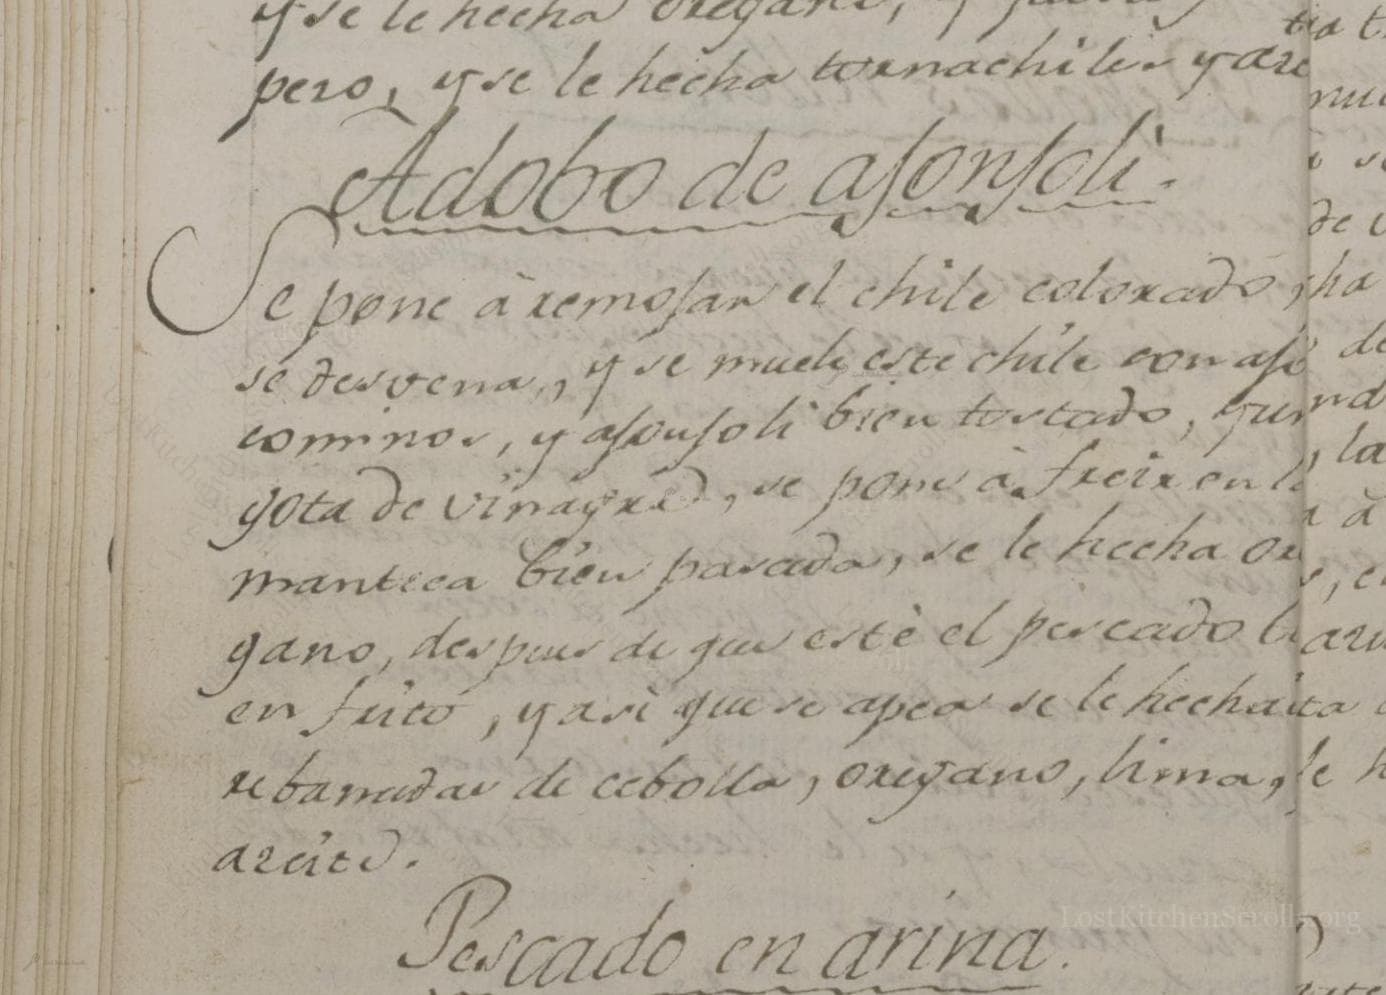 y se le hecha oregano, y
pero, y se le hecha tornachiles y aze
Adobo de ajonjoli.
Se pone à remojar el chile colorado,
se desvena, y se muele este chile con ajo
cominos, y ajonjoli bien tostado, y un
gota de vinagre, se pone à freir en la
manteca bien pasada, se le hecha ore
gano, despues de que estè el pescado bi
en frito, y asi que se apea se le hecha
rebanadas de cebolla, oregano, lima,
azeite.
Pescado en arina.
LostKitchenScrolls.org